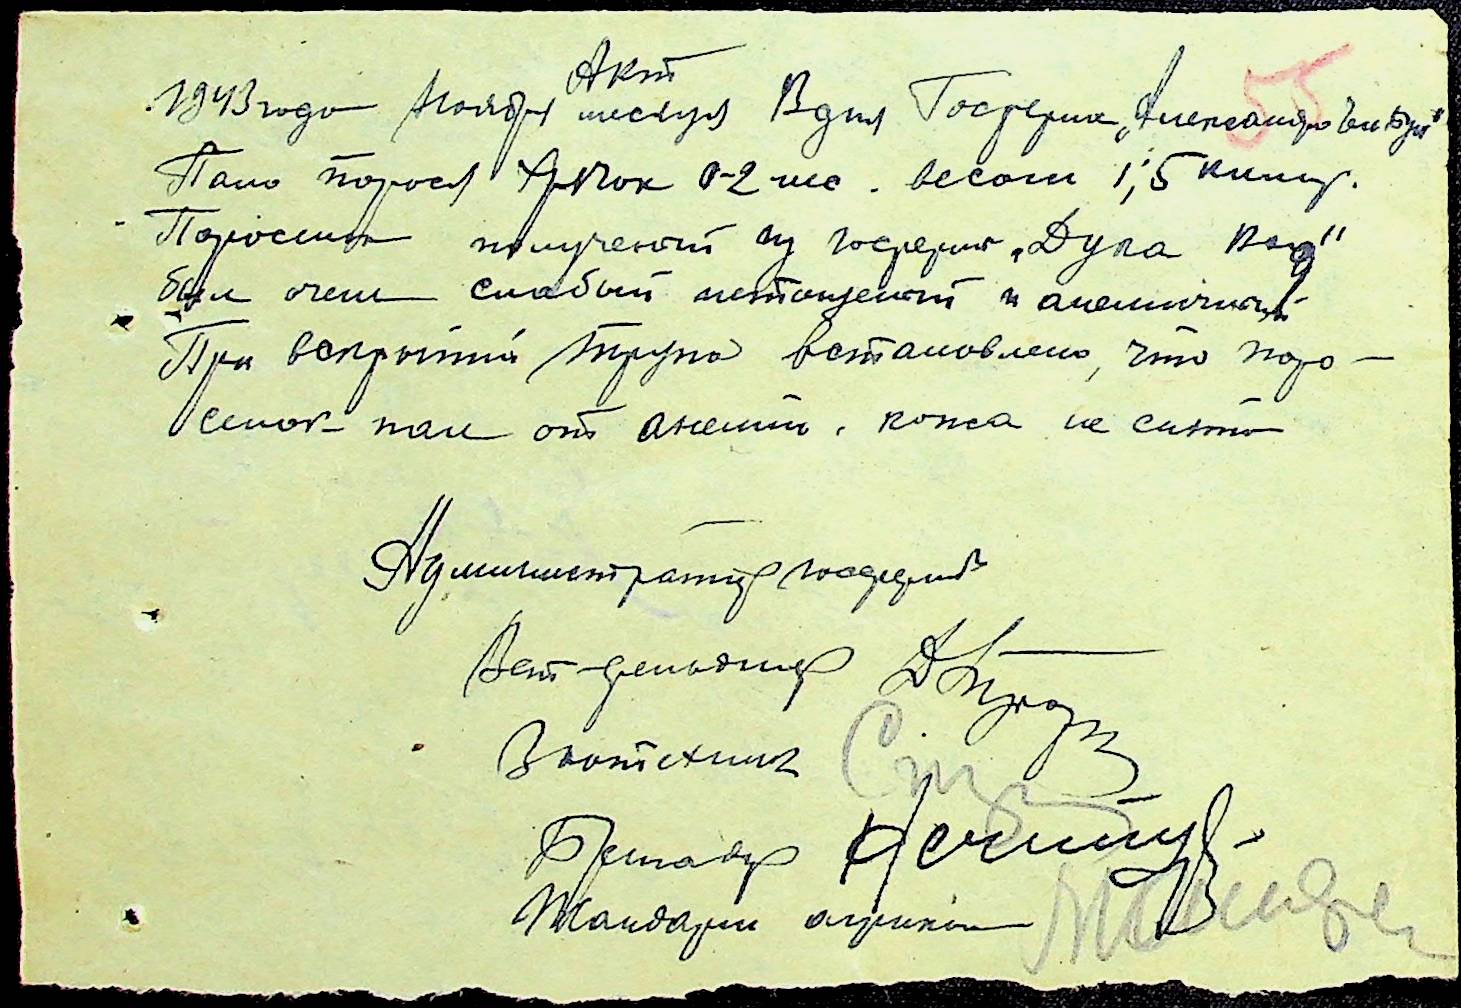 Акт
55
1943 года Ноября месяца В дня Госферма „Александро
Пало порося хрячок 0-2 мес. весом 1,5 килгр.
Поросенок полученый из госфермы „Дука Вод"
был очень слабый истощеный и анемичный
При вскрытий трупа встановлено, что поро-
сенок пал от анемии. кожа не снята
Администратор госфермы
Вет-фельдшер
Зоотехник
Бригадир
Жандарм агрикол